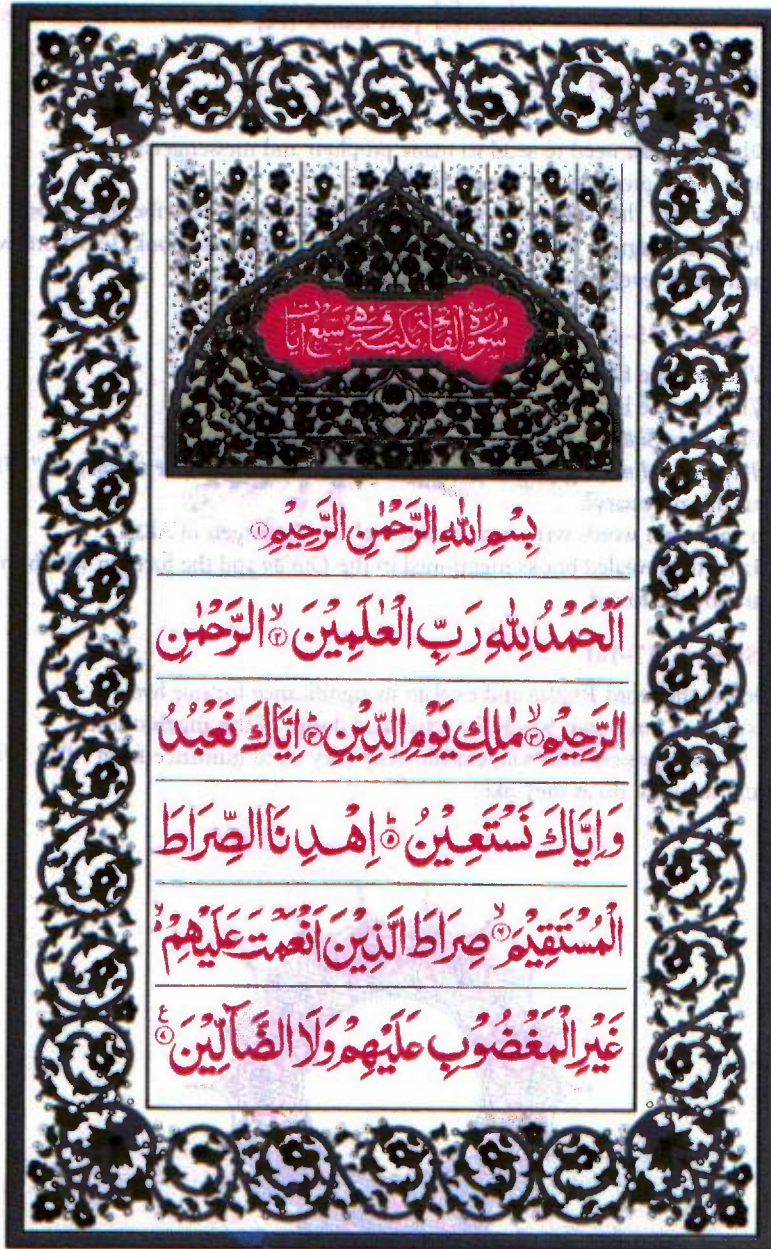 سُوْرَةُ الْفَاتِحَةِ مَكِّيَّةٌ وَّهِيَ سَبْعُ اٰيَاتٍ
بِسْمِ اللّٰهِ الرَّحْمٰنِ الرَّحِيْمِ ۝۱
اَلْحَمْدُ لِلّٰهِ رَبِّ الْعٰلَمِيْنَ ۙ۝۲ الرَّحْمٰنِ
الرَّحِيْمِ ۙ۝۳ مٰلِكِ يَوْمِ الدِّيْنِ ۝۴ اِيَّاكَ نَعْبُدُ
وَاِيَّاكَ نَسْتَعِيْنُ ؕ۝۵ اِهْدِنَا الصِّرَاطَ
الْمُسْتَقِيْمَ ۙ۝۶ صِرَاطَ الَّذِيْنَ اَنْعَمْتَ عَلَيْهِمْ ۙ
غَيْرِ الْمَغْضُوْبِ عَلَيْهِمْ وَلَا الضَّآلِّيْنَ ۝۷ ع